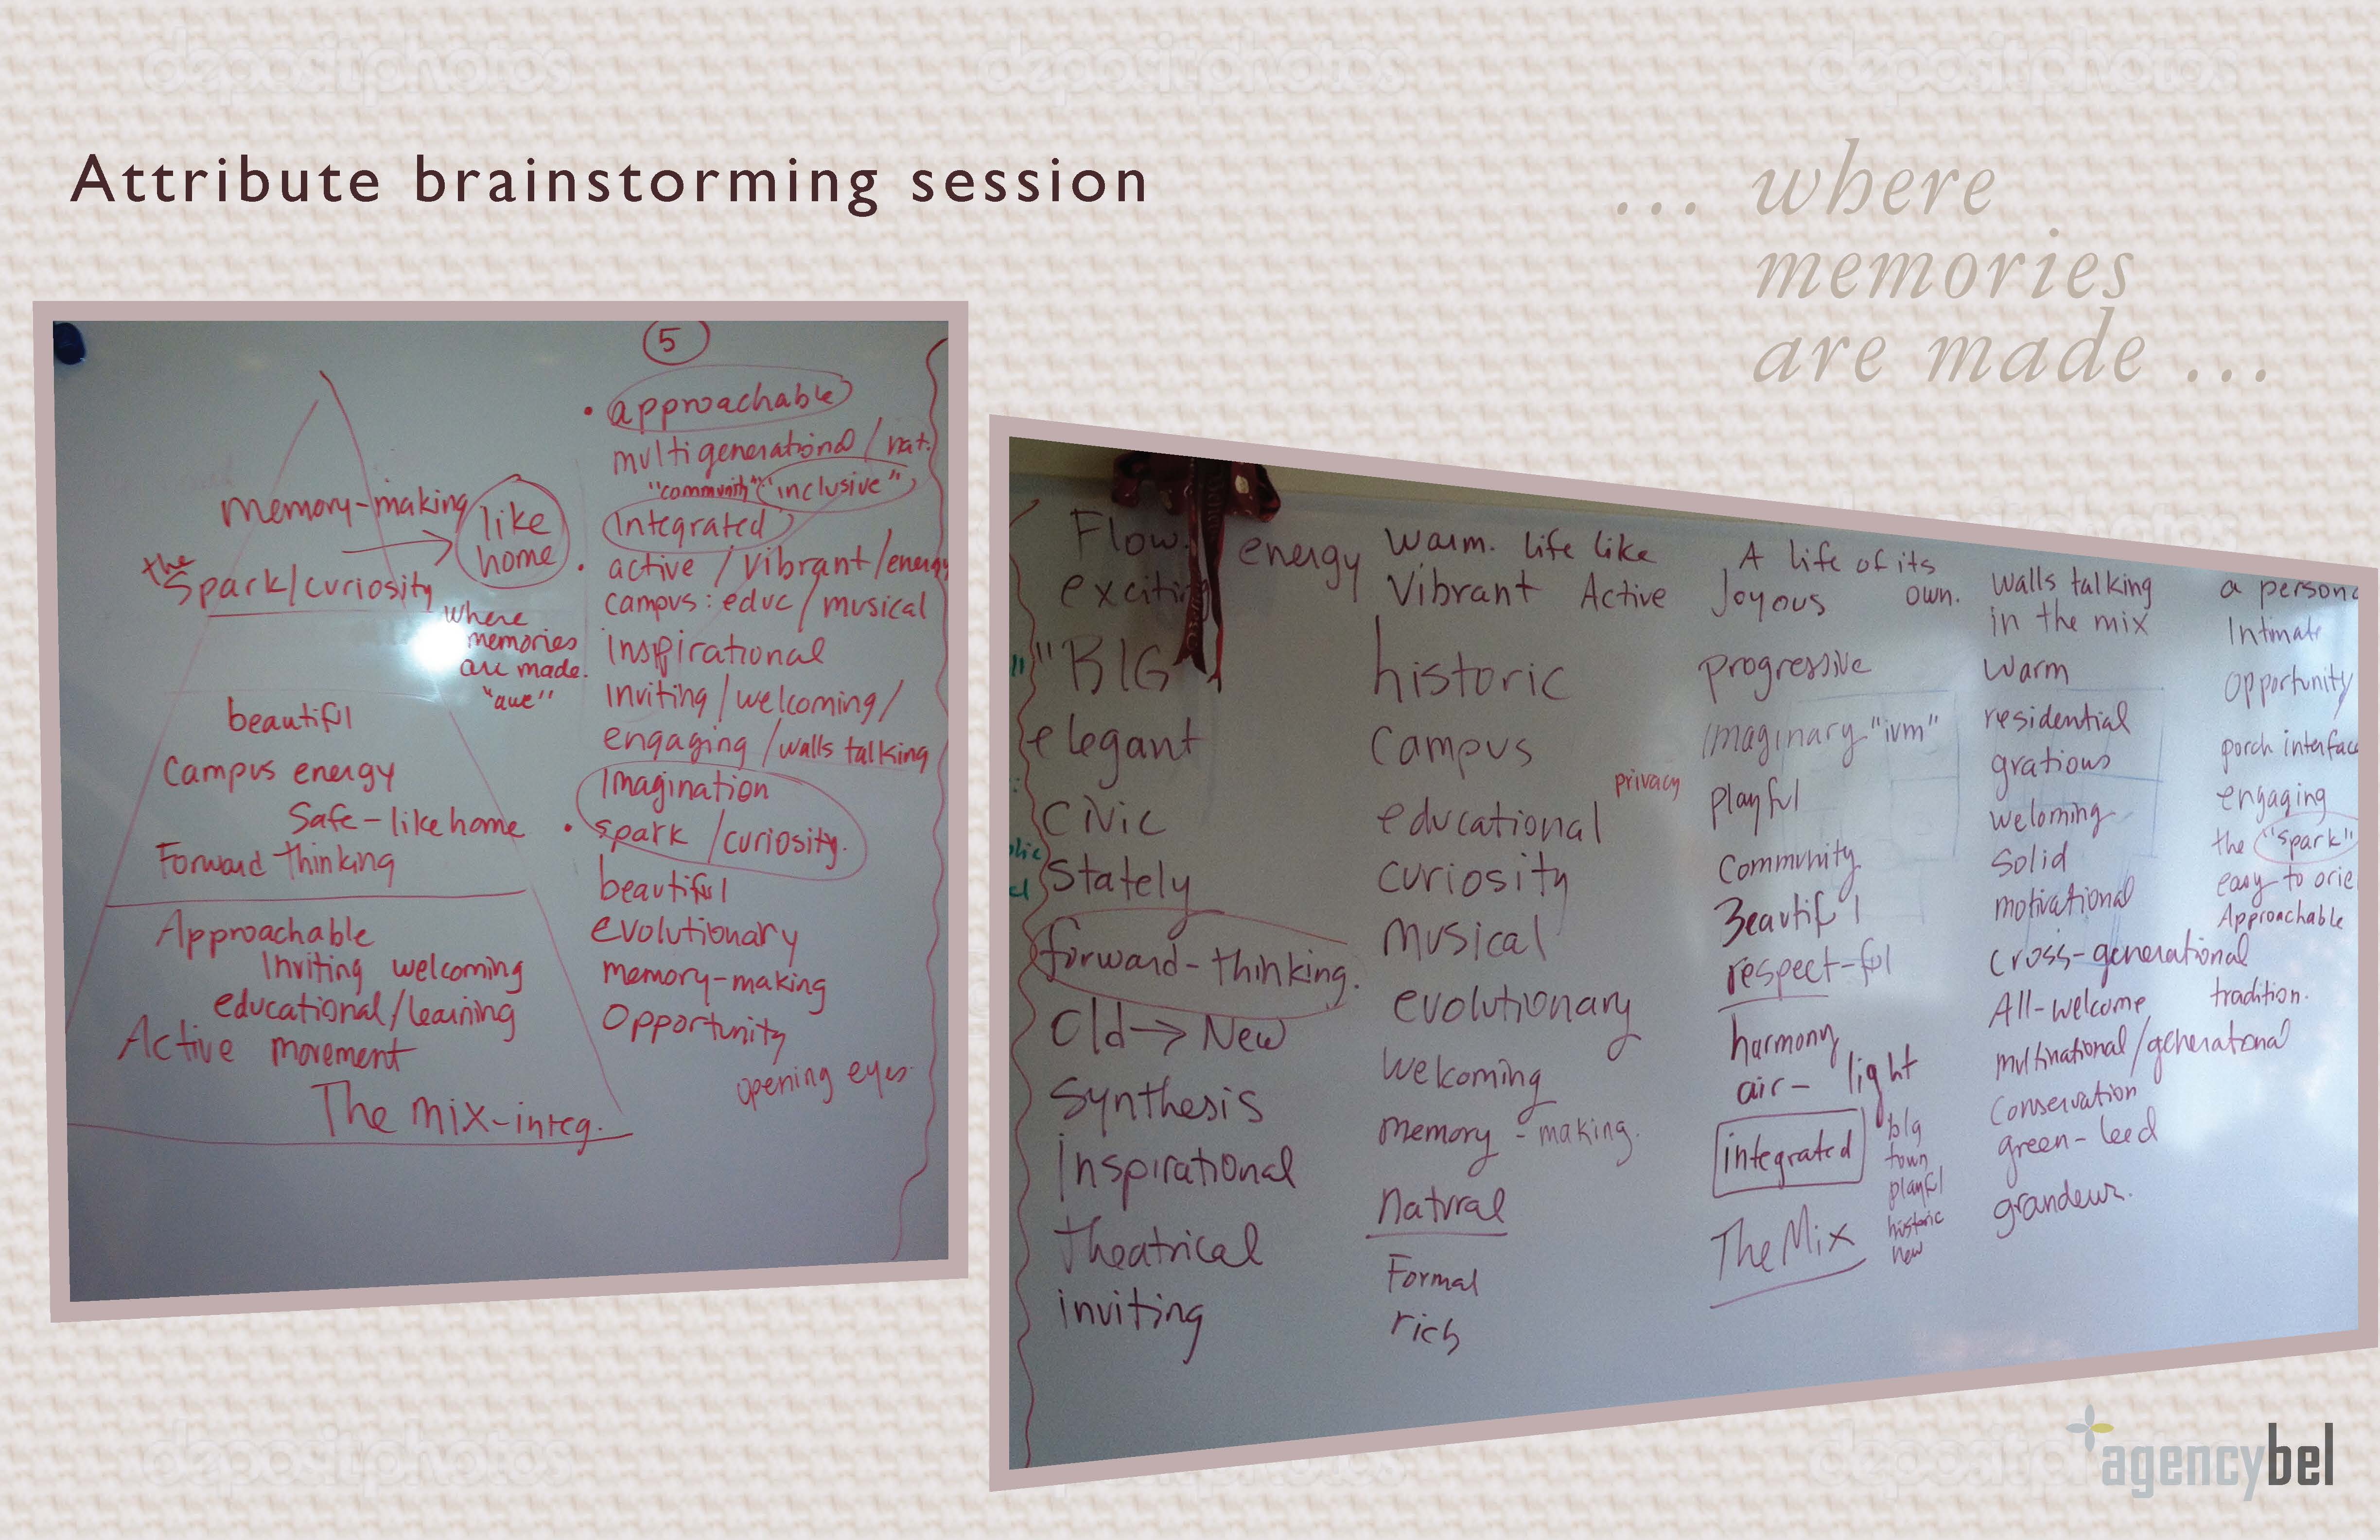 Attribute brainstorming session
... where
memories
are made ...
5
memory-making
like
home
the
Spark/curiosity
where
memories
are made.
"awe"
beautiful
Campus energy
Safe-like home
Forward thinking
Approachable
Inviting welcoming
educational/learning
Active movement
The mix-integ.
• approachable
multigenerational/nat.
"community" "inclusive"
Integrated
• active/vibrant/energy
campus: educ/musical
Inspirational
Inviting/welcoming/
engaging/walls talking
Imagination
• spark/curiosity.
beautiful
evolutionary
memory-making
Opportunity
opening eyes
Flow. energy
exciting
"BIG
elegant
Civic
Stately
forward-thinking.
Old → New
Synthesis
Inspirational
theatrical
inviting
Warm. life like
Vibrant Active
historic
Campus
educational
curiosity
musical
evolutionary
Welcoming
memory-making.
Natural
Formal
rich
privacy
A life of its
Joyous own.
progressive
Imaginary "ivm"
playful
Community
Beautiful
respect-ful
harmony
air- light
integrated
The Mix
big
town
playful
historic
new
walls talking
in the mix
Warm
residential
gratious
weloming
Solid
motivational
cross-generational
All-welcome
multinational/generational
Conservation
green-leed
grandeur.
a person
Intimate
Opportunity
porch interface
engaging
the "spark"
easy to orie
Approachable
tradition.
agencybel
depositphotos
depositphotos
depositphotos
depositphotos